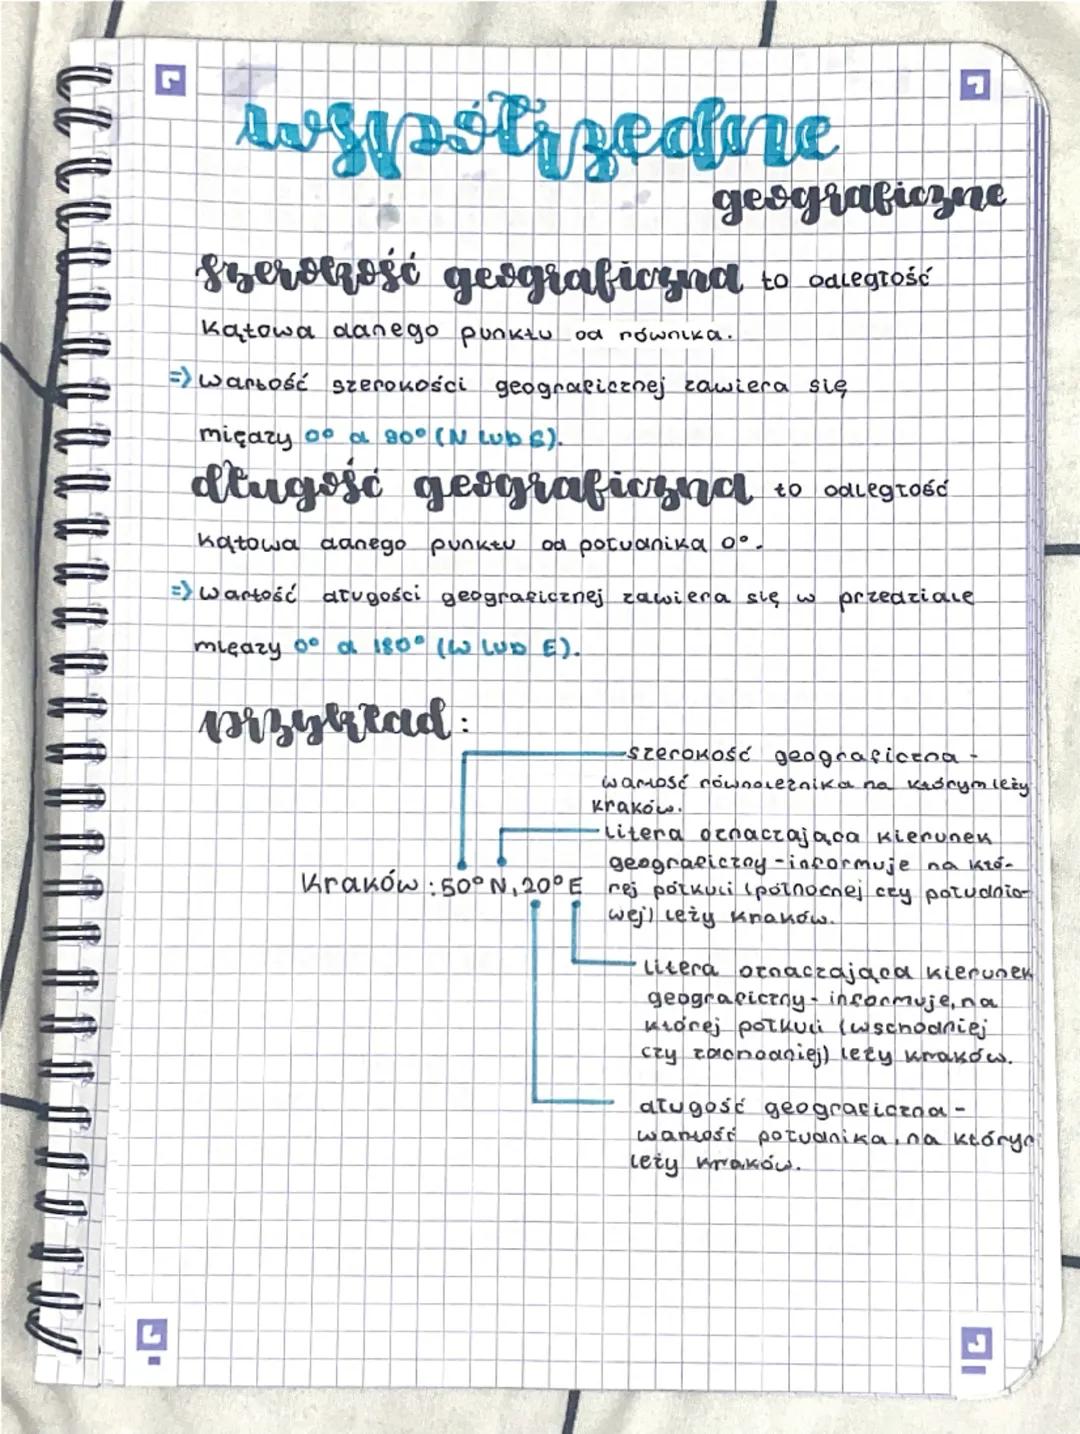 współrzędne
geograficzne
szerokość geograficzna to odległość
kątowa danego punktu od równika.
=> wartość szerokości geograficznej zawiera się
między 0° a 90° (N lub S).
długość geograficzna to odległość
kątowa danego punktu od południka 0°.
=> wartość długości geograficznej zawiera się w przedziale
między 0° a 180° (W lub E).
przykład:
szerokość geograficzna -
wartość równoleżnika na którym leży
Kraków.
litera oznaczająca kierunek
geograficzny - informuje na któ-
rej półkuli (północnej czy południo-
wej) leży Kraków.
Kraków: 50° N, 20° E
litera oznaczająca kierunek
geograficzny - informuje, na
której półkuli (wschodniej
czy zachodniej) leży Kraków.
długość geograficzna -
wartość południka, na którym
leży Kraków.